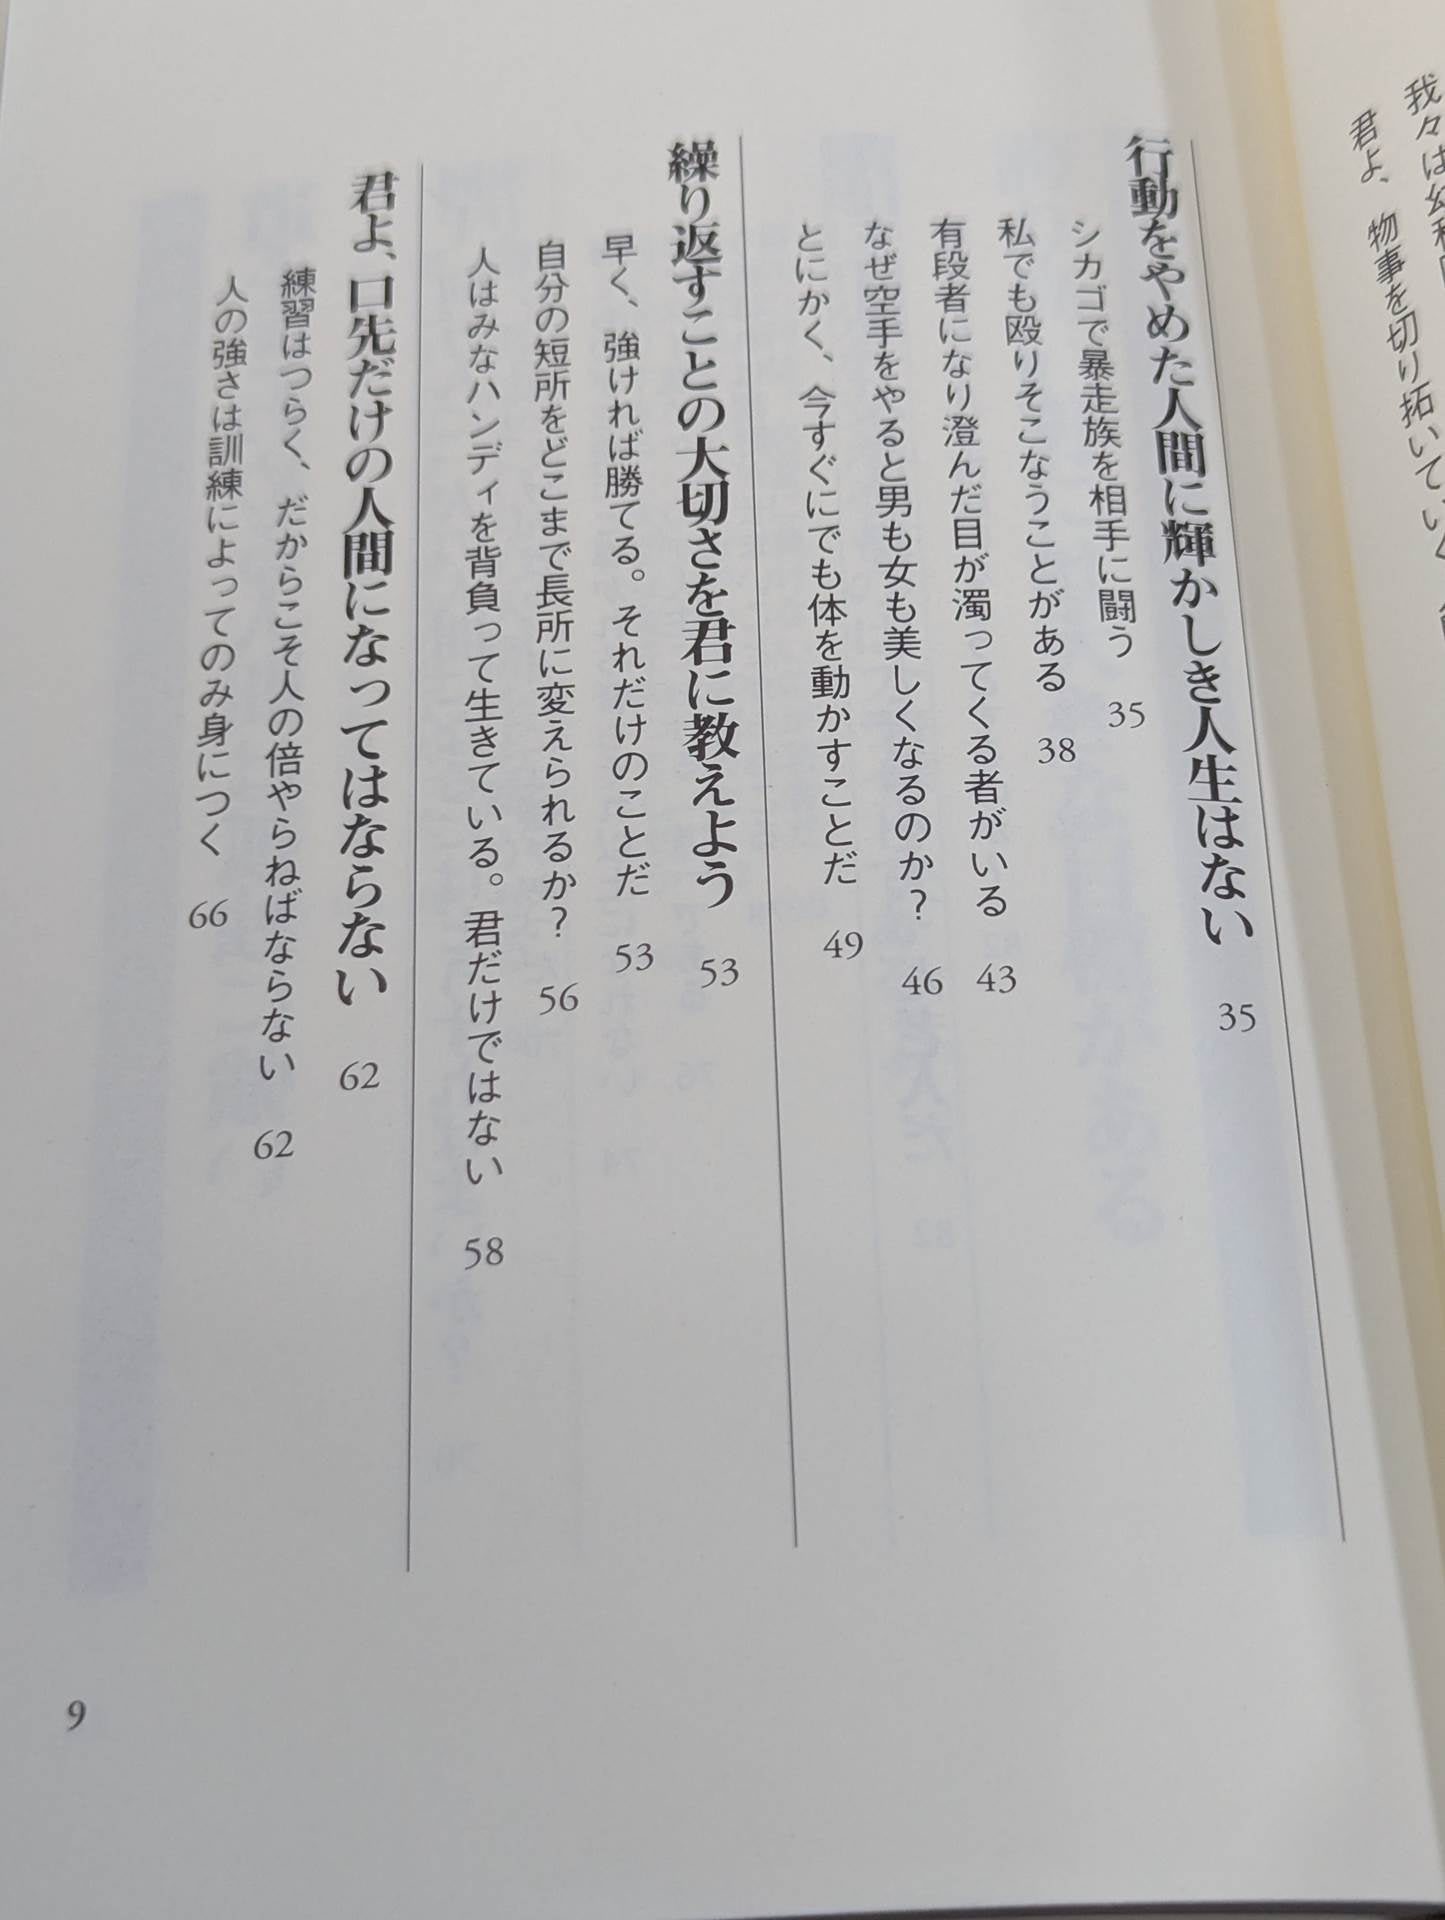 君よ、物事を切り拓いてい
行動をやめた人間に輝かしき人生はない 35
シカゴで暴走族を相手に闘う 35
私でも殴りそこなうことがある 38
有段者になり澄んだ目が濁ってくる者がいる 43
なぜ空手をやると男も女も美しくなるのか? 46
とにかく、今すぐにでも体を動かすことだ 49
繰り返すことの大切さを君に教えよう 53
早く、強ければ勝てる。それだけのことだ 53
自分の短所をどこまで長所に変えられるか? 56
人はみなハンディを背負って生きている。君だけではない 58
君よ、口先だけの人間になってはならない 62
練習はつらく、だからこそ人の倍やらねばならない 62
人の強さは訓練によってのみ身につく 66
9